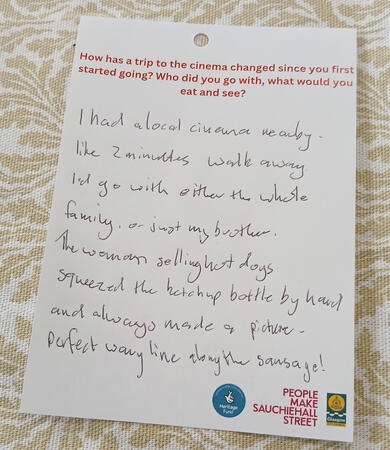 How has a trip to the cinema changed since you first
started going? Who did you go with, what would you
eat and see?
I had a local cinema nearby -
like 2 minutes walk away
I'd go with either the whole
family, or just my brother.
The woman selling hot dogs
squeezed the ketchup bottle by hand
and always made a picture-
perfect wavy line along the sausage!
Heritage
Fund
PEOPLE
MAKE
SAUCHIEHALL
STREET
Glasgow